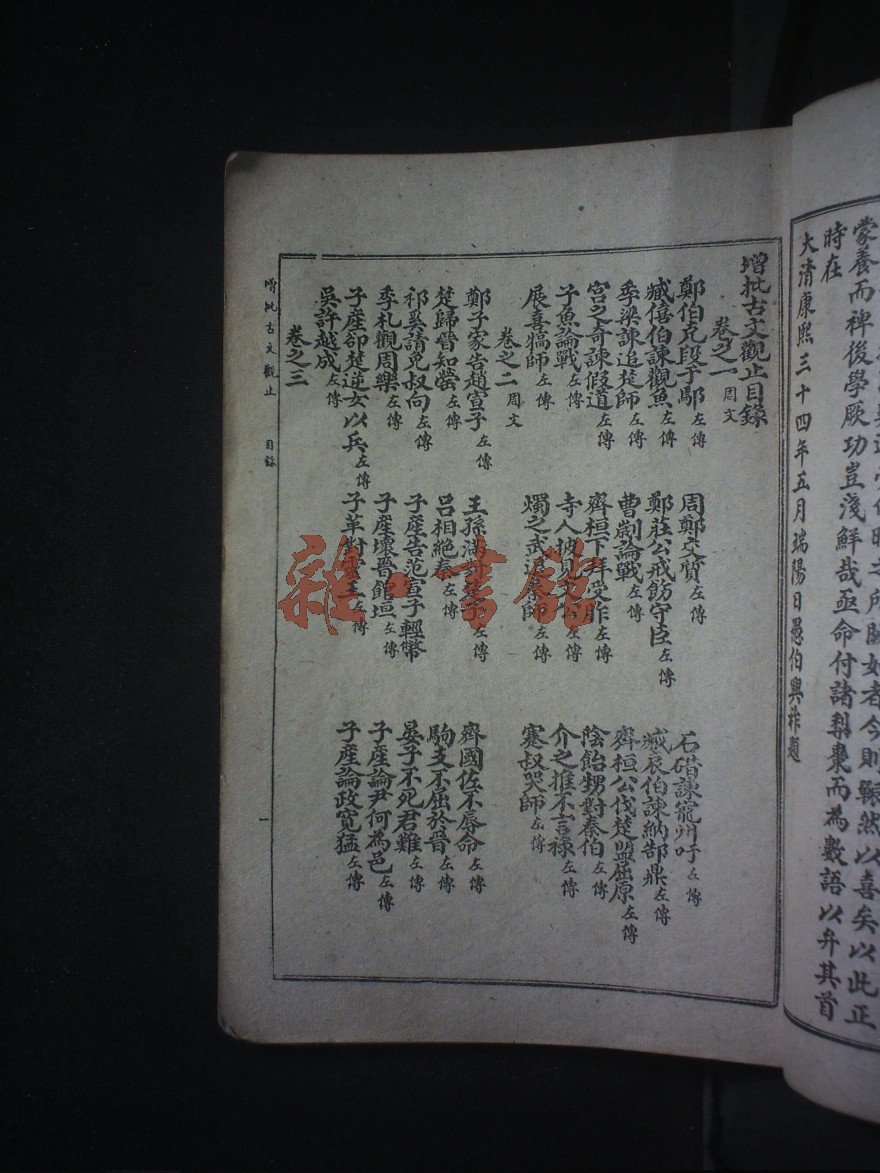 者今則囅然以喜矣以此正
蒙養而裨後學厥功豈淺鮮哉亟命付諸梨棗而為數語以弁其首
時在
大清康熙三十四年五月端陽日愚伯興祚題
增批古文觀止目錄
卷之一 周文
鄭伯克段于鄢 左傳 周鄭交質 左傳 石碏諫寵州吁 左傳
臧僖伯諫觀魚 左傳 鄭莊公戒飭守臣 左傳 臧哀伯諫納郜鼎 左傳
季梁諫追楚師 左傳 曹劌論戰 左傳 齊桓公伐楚盟屈原 左傳
宮之奇諫假道 左傳 齊桓下拜受胙 左傳 陰飴甥對秦伯 左傳
子魚論戰 左傳 寺人披見文公 左傳 介之推不言祿 左傳
展喜犒師 左傳 燭之武退秦師 左傳 蹇叔哭師 左傳
卷之二 周文
鄭子家告趙宣子 左傳 王孫滿對楚子 左傳 齊國佐不辱命 左傳
楚歸晉知罃 左傳 呂相絕秦 左傳 駒支不屈於晉 左傳
祁奚請免叔向 左傳 子產告范宣子輕幣 晏子不死君難 左傳
季札觀周樂 左傳 子產壞晉館垣 左傳 子產論尹何為邑 左傳
子產卻楚逆女以兵 左傳 子革對靈王 左傳 子產論政寬猛 左傳
吳許越成 左傳
卷之三
增批古文觀止 目錄 一
雜·書館